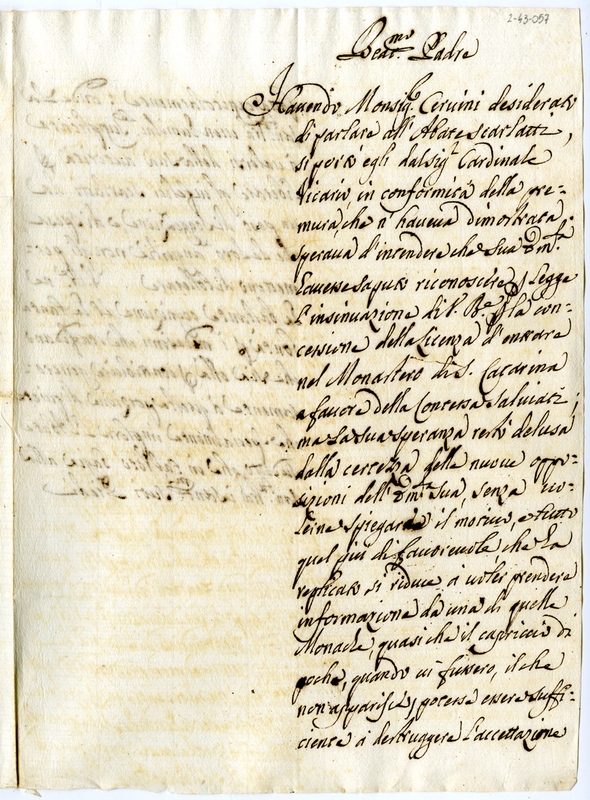 2-43-057
Beat.mo Padre
Havendo Monsig.r Cervini desiderato
di parlare all'Abate Scarlatti,
si portò egli dal Sig.r Cardinale
Vicario, in conformità della pre-
mura, che n'haveva dimostrata,
sperava d'intendere che Sua Em.za
havesse saputo riconoscere p legge
l'insinuazione di V. B.ne p la con-
cessione della licenza d'entrare
nel Monastero di S. Catarina
a favore della Contessa Salviati;
ma la sua speranza restò delusa
dalla certezza delle nuove oppo-
sizioni dell'Em.za Sua, senza vo-
lerne spiegare il motivo, e tutto
quel più di favorevole che ha
replicato si riduce a voler prendere
informazione da una di quelle
Monache, quasi che il capriccio di
poche, quando vi fussero, il che
non apparisce, potesse essere suffi-
ciente a distruggere l'accettazione